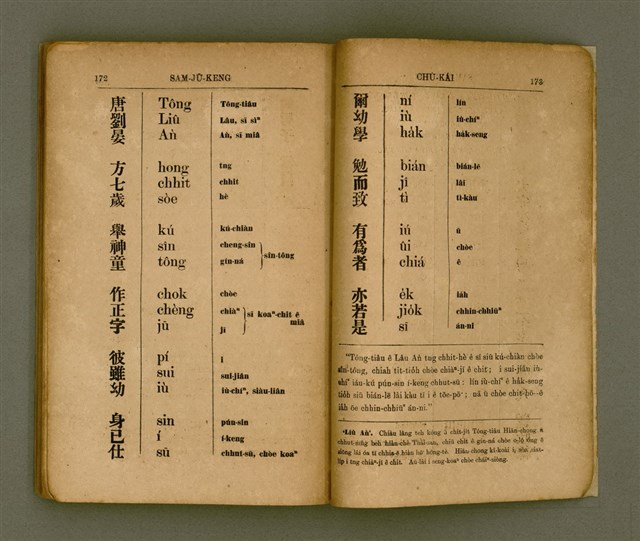 172 SAM-JŪ-KENG
唐 Tông Tông-tiâu
劉 Liû Lâu, sī sìⁿ
晏 Àn Àn, sī miâ
方 hong tng
七 chhit chhit
歲 sòe hè
舉 kú kú-chiàn
神 sîn cheng-sîn
童 tông gín-ná
sîn-tông
作 chok chòe
正 chèng chiàⁿ
字 jū jī
sī koaⁿ-chit ê
miâ
彼 pí i
雖 sui sui-jiân
幼 iù iù-chíⁿ, siàu-liân
身 sin pún-sin
已 í í-keng
仕 sū chhut-sū, chòe koaⁿ
CHÙ-KÁI 173
爾 ní lín
幼 iù iù-chíⁿ
學 ha̍k ha̍k-seng
勉 bián bián-lē
而 jî lâi
致 tì tì-kàu
有 iú ū
爲 ûi chòe
者 chiá ê
亦 e̍k ia̍h
若 jio̍k chhin-chhiūⁿ
是 sī án-ni
"Tông-tiâu ê Lâu Àn tng chhit-hè ê sî siū kú-chiàn chòe
sîn-tông, chiah tit-tio̍h chòe chiàⁿ-jī ê chit; i sui-jiân iù-
chíⁿ iáu-kú pún-sin í-keng chhut-sū; lín iù-chíⁿ ê ha̍k-seng
tio̍h siū bián-lē lâi kàu tī i ê tōe-pō͘; nā ū chòe chit-hō ê
ia̍h ōe chhin-chhiūⁿ án-ni."